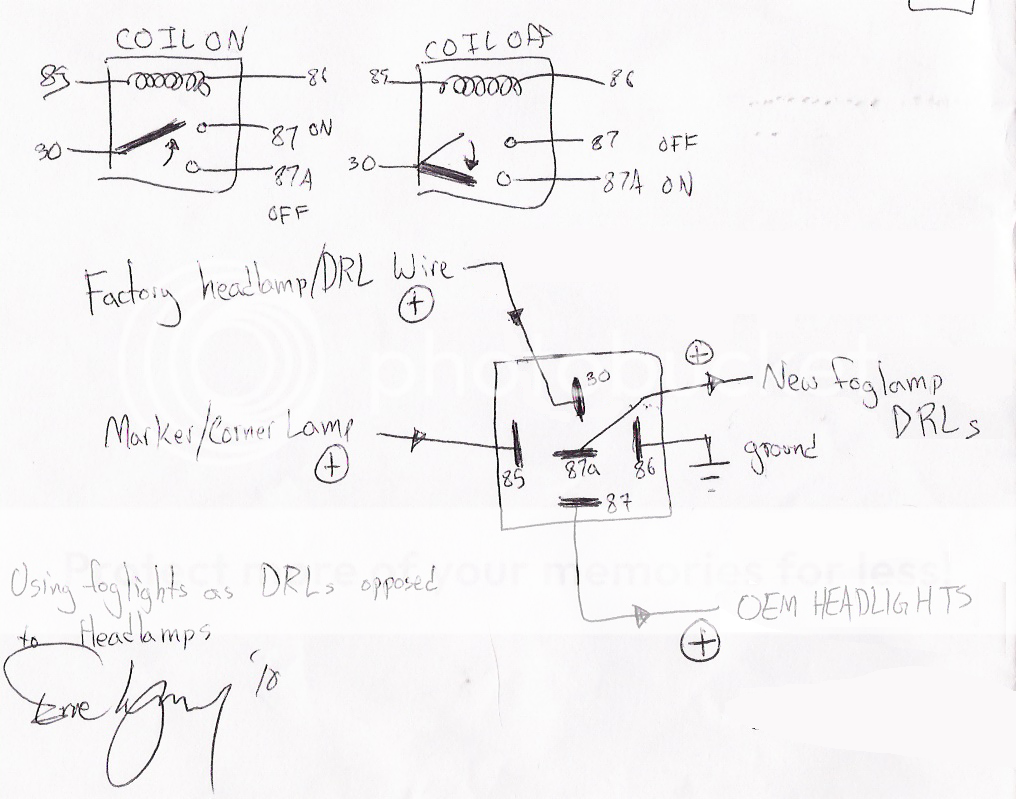 COIL ON
85 86
30 87 ON
87A
OFF
COIL OFF
85 86
30 87 OFF
87A ON
Factory headlamp/DRL Wire
+
30
+
New foglamp
DRLs
Marker/Corner Lamp
+
85 87a 86
ground
87
Using foglights as DRLs opposed
to Headlamps
OEM HEADLIGHTS
+
'10
Protect more of your memories for less!
photobucket